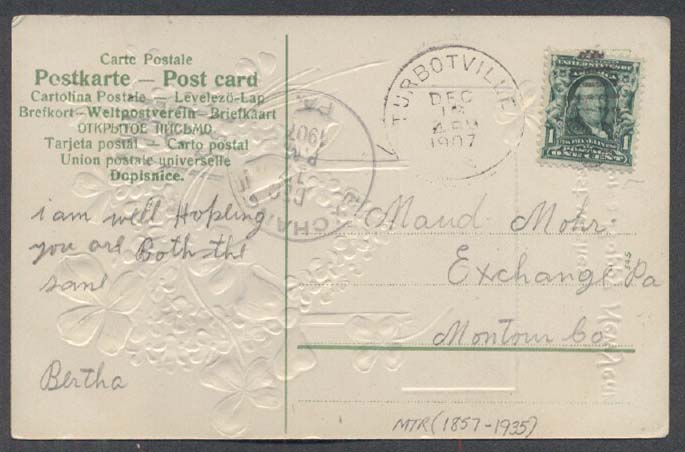 Carte Postale
Postkarte — Post card
Cartolina Postale — Levelező-Lap
Brefkort – Weltpostverein – Briefkaart
ОТКРЫТОЕ ПИСЬМО
Tarjeta postal — Carto postal
Union postale universelle
Dopisnice.
i am well Hopling
you are Both the
same
Bertha
TURBOTVILLE
DEC
1907
EXCHANGE
PA.
DEC
1907
UNITED STATES OF
AMERICA
1 1
ONE CENT
Maud Mohr
Exchange Pa
Montour Co
545
MTR (1857-1935)